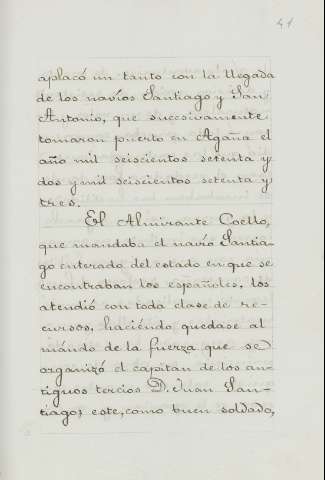 41
aplacó un tanto con la llegada
de los navíos Santiago y San
Antonio, que sucesivamente
tomaron puerto en Agaña el
año mil seiscientos setenta y
dos y mil seiscientos setenta y
tres.
El Almirante Coello,
que mandaba el navío Santia-
go enterado del estado en que se
encontraban los españoles, los
atendió con toda clase de re-
cursos, haciendo quedase al
mando de la fuerza que se
organizó el capitan de los an-
tiguos tercios D. Juan San-
tiago; este, como buen soldado,